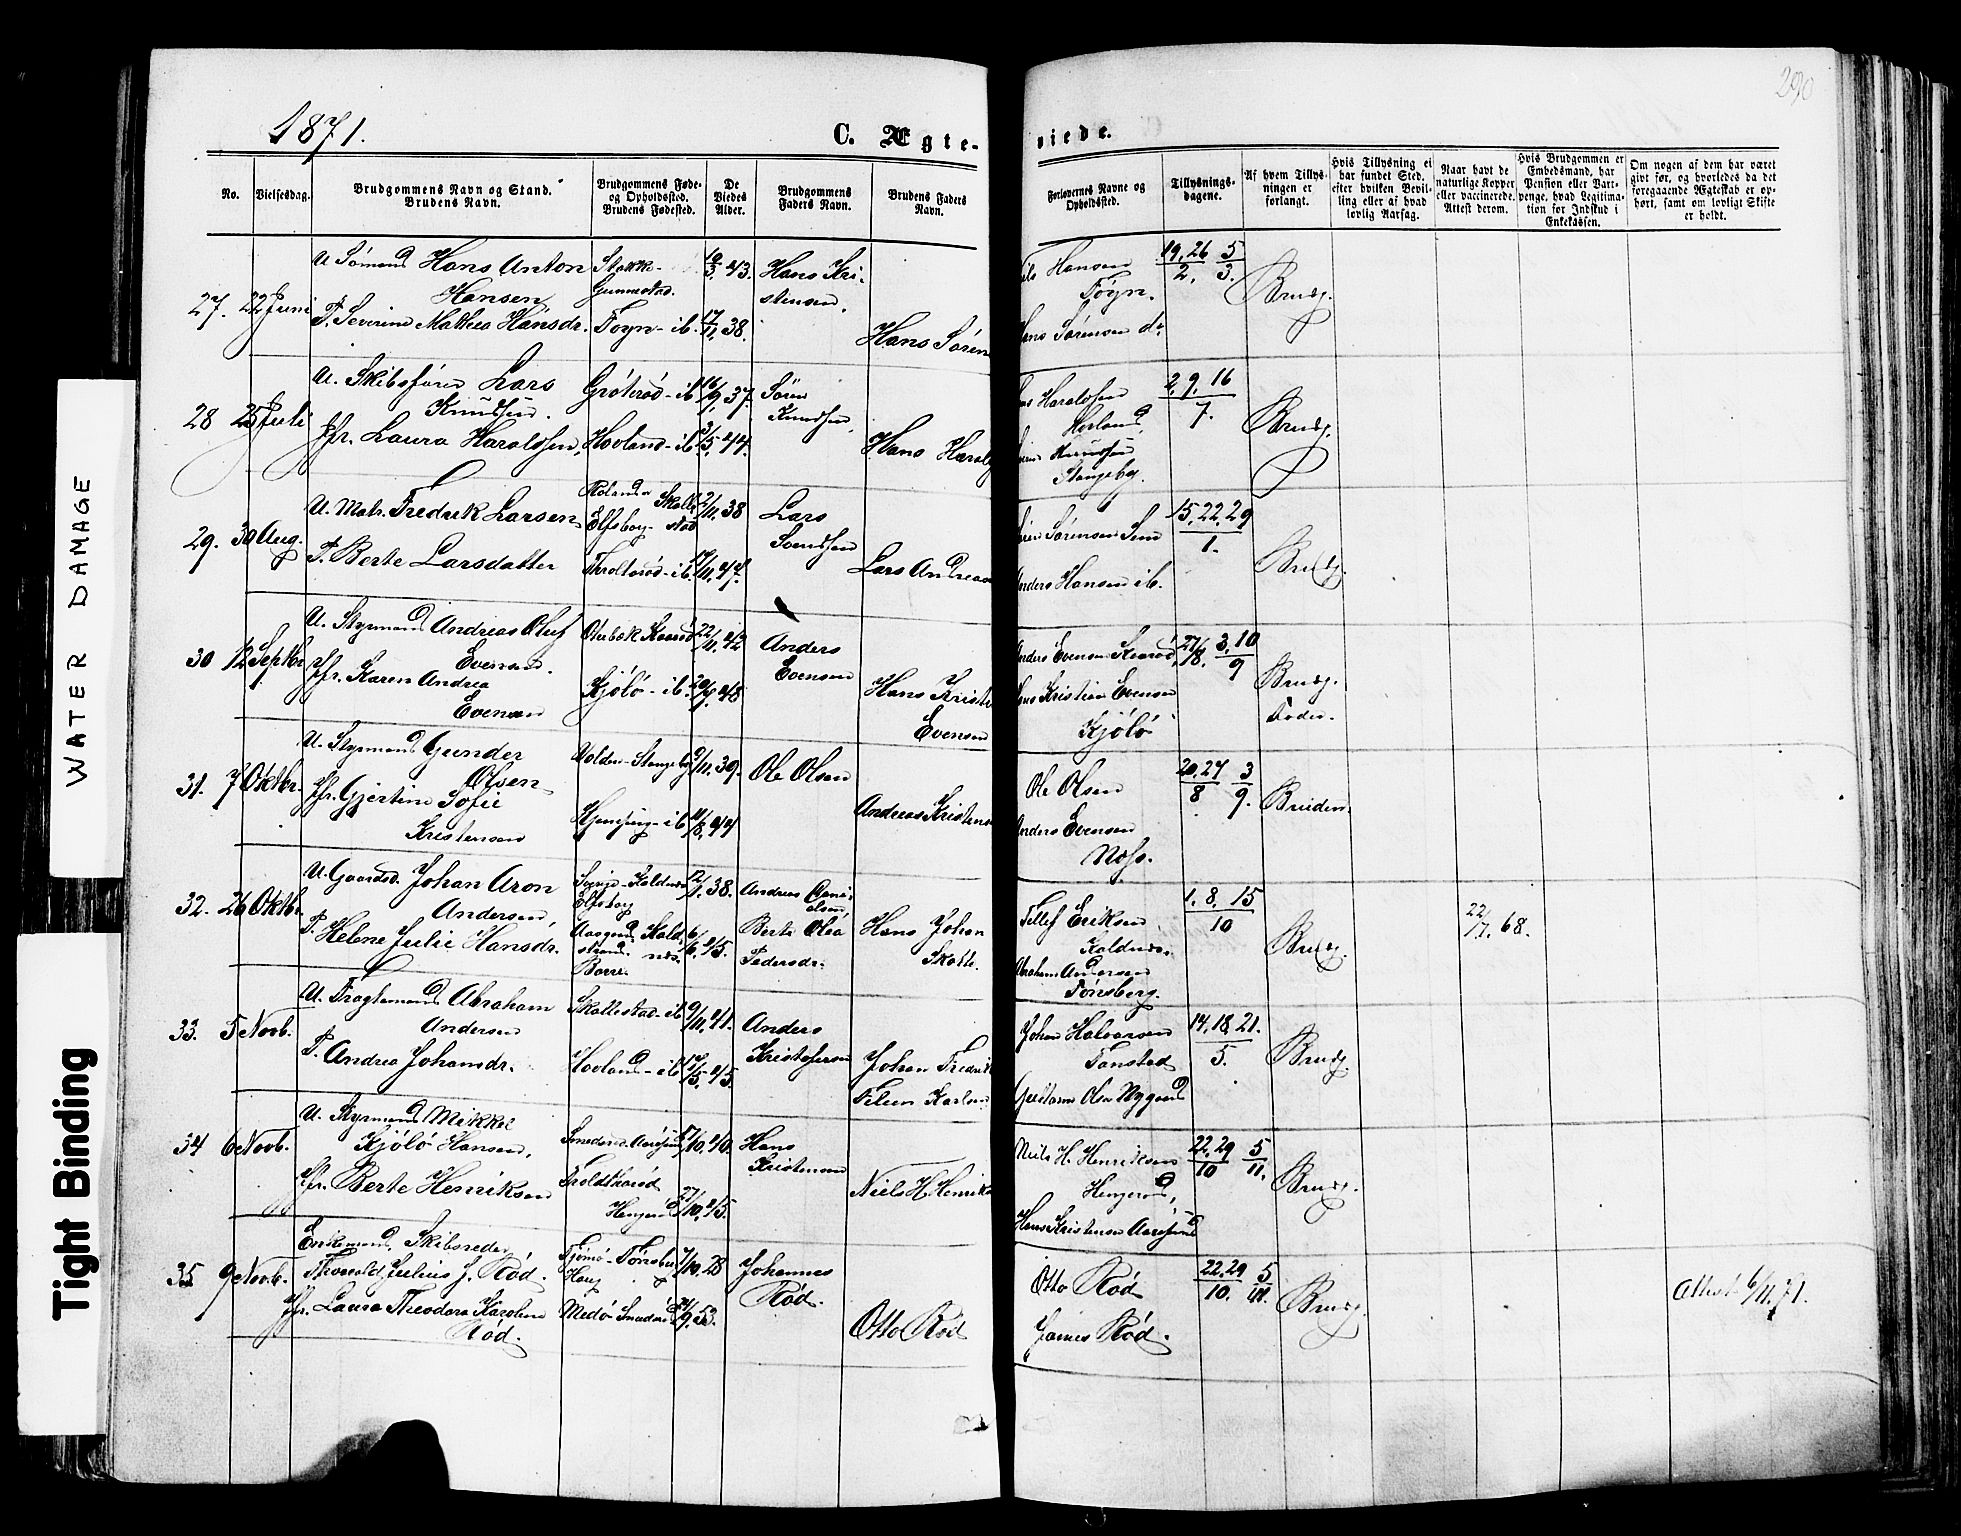 290
1871.
C. Ægte-
viede.
No.
Vielsesdag.
Brudgommens Navn og Stand.
Brudens Navn.
Brudgommens Føde-
og Opholdssted.
Brudens Fødested.
De
Viedes
Alder.
Brudgommens
Faders Navn.
Brudens Faders
Navn.
Forlovernes Navne og
Opholdssted.
Tillysnings-
dagene.
Af hvem Tillys-
ningen er
forlangt.
Hvis Tillysning ei
har fundet Sted,
efter hvilken Bevil-
ling eller af hvad
lovlig Aarsag.
Naar havt de
naturlige Kopper
eller vaccinerede.
Attest derom.
Hvis Brudgommen er
Embedsmand, har
Pension eller Vart-
penge, hvad Legitima-
tion for Indskud i
Enkekassen.
Om nogen af dem har været
gift før, og hvorledes da det
foregaaende Ægteskab er op-
hørt, samt om lovligt Skifte
er holdt.
27. 22 Juni
U. Sømand Hans Anton
Hansen
P. Severine Mathea Hansdr.
Gunnestad.
Toyn - ib.
43.
38.
Hans Kri-
stensen.
Hans Søren
Hansen
Toyn.
Hans Sørensen do
19, 26 5
2. 3.
Brudg.
28 25 Juli
U. Skibsfører Lars
Knudsen.
Jfr. Laura Haraldsen,
Gróterød - ib
Hovland - ib
16/9 37.
3/5 44.
Søren
Knudsen
Hans Harald
Haraldsen
Hovland,
Knudsen
Stangeby.
2, 9, 16
7.
Brudg.
29. 30 Aug.
U. Matr. Fredrik Larsen
P. Berte Larsdatter
Elfsborg
2/11 38
17/11 47.
Lars
Svendsen
Lars Andreas
Sørensen Sem
Anders Hansen ib.
15, 22, 29
1.
Brudg.
30 12 Septbr
U. Styrmand Andreas Oluf
Evensen.
Jfr. Karen Andrea
Evensen
Oterbæk Kaarød
Kjøló - ib.
22/11 42
48
Anders
Evensen
Hans Kristi
Evensen
Anders Evensen Kaarød
Hans Kristian Evensen
Kjøló
27/8. 3, 10
9
Brudg.
Fader.
31. 7 Oktbr.
U. Styrmand Gunder
Olsen
Jfr. Gjertine Sofie
Kristensen
Volden - Stangeby
/11. 39.
/8. 44
Ole Olsen
Andreas Kristens
Ole Olsen
Anders Evensen
Næs.
20, 27 3
8 9.
Bruden.
32. 26 Oktbr.
U. Gaardsd. Johan Aron
Andersen,
P. Helene Julie Hansdr.
Elfsborg
Aasgaard
strand
Borre.
12/1. 38.
6/6. 45.
Andreas
Berte Olea
Pedersdr.
Hans Johan
Tellef Eriksen
Kaldnæs.
Abraham Andersen
Tønsberg.
1, 8, 15
10
Brudg.
22/7. 68.
33. 5 Novb.
U. Fragtemand Abraham
Andersen
P. Andrea Johansdr.
Skallestad - ib
Hovland - ib
9/11. 41.
17/5. 45.
Anders
Kristofersen
Johan Fredrik
Karlsen
Johan Halvorsen
Tanstad
Olsen Nygaard
14, 18, 21.
5.
Brudg.
34 6 Novb.
U. Styrmand Mikkel
Kjóló Hansen,
Jfr. Berte Henriksen
Hengerød
/10. 40.
27/10. 45.
Hans
Kristensen
Niels H Henriks
Niels H. Henriksen
Hengerød,
Hans Kristensen Aarøsund
22, 29 5
10 11.
Brudg.
35 9 Novb.
Enkemand, Skibsreder
Thorvald Julius J. Rød.
Jfr. Laura Theodora Karoline
Rød.
Tjømø - Tønsberg
Haug
Medø
7/10 28
/9. 53.
Johannes
Rød.
Otto Rød
Otto Rød
James Rød.
22, 29 5
10. 11.
Brudg.
Attest 6/11. 71.
WATER DAMAGE
Tight Binding